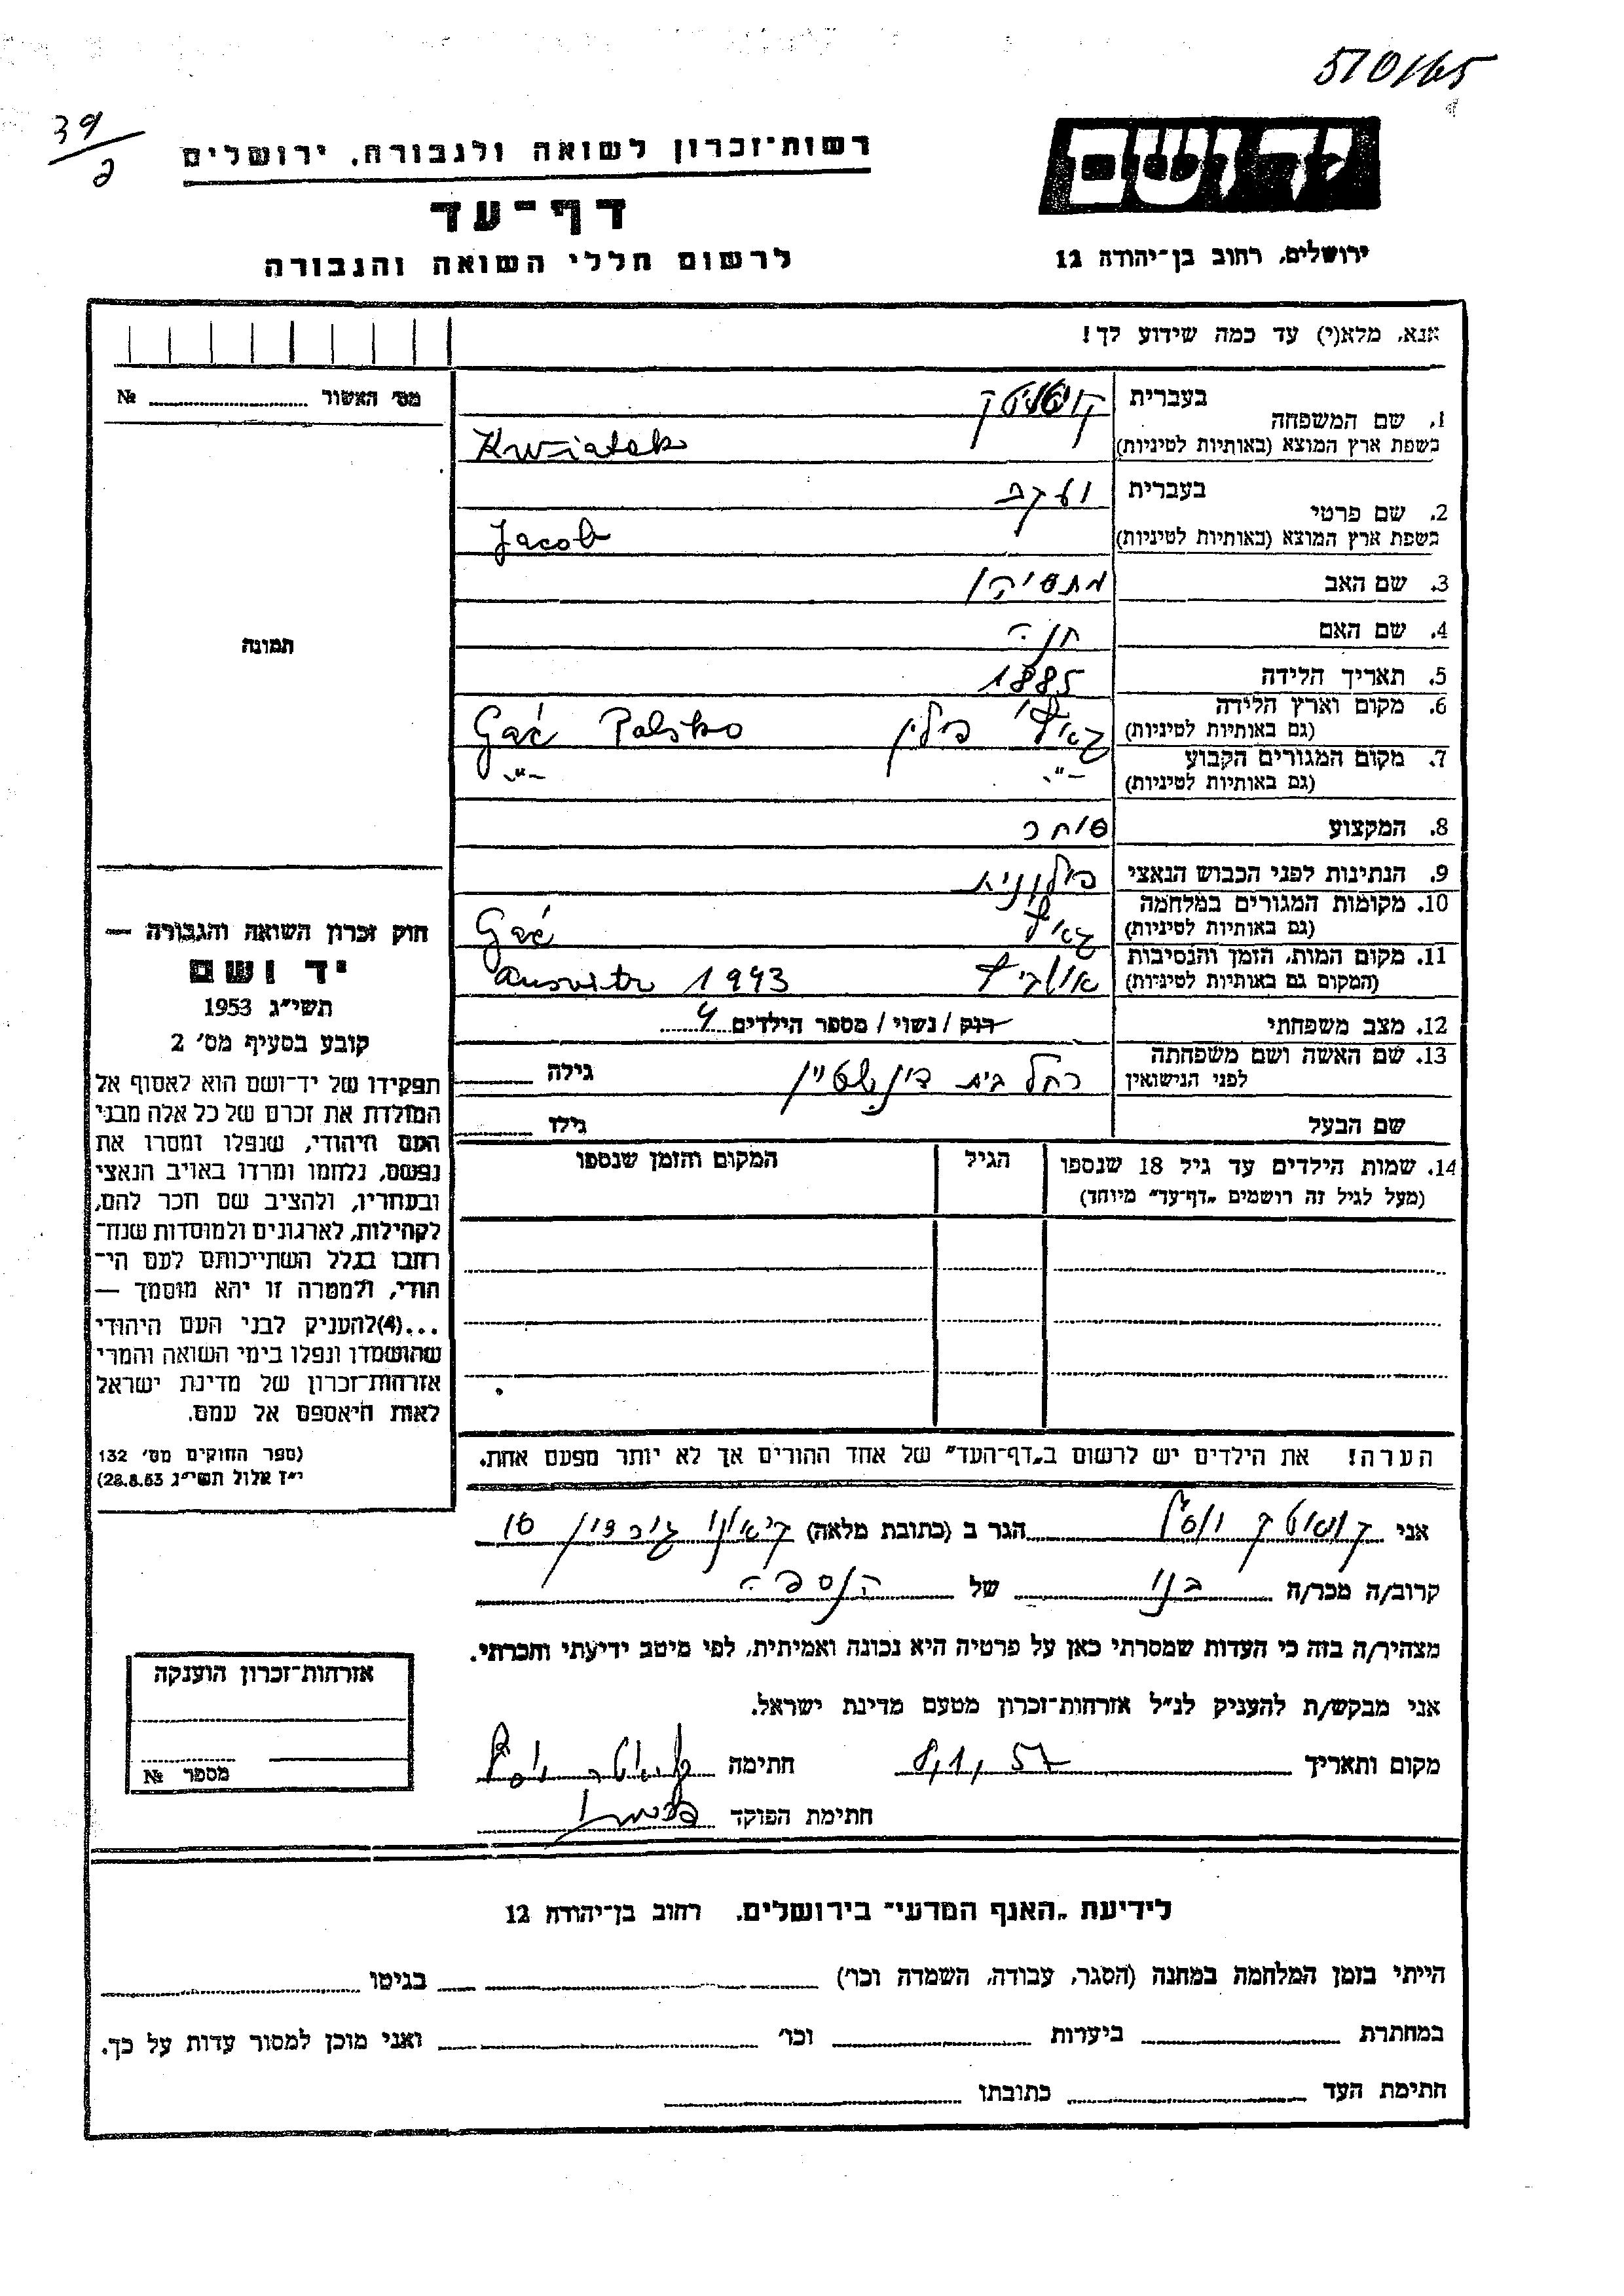 570/65
39/2
יד ושם
רשות־זכרון לשואה ולגבורה, ירושלים
דף־עד
לרשום חללי השואה והגבורה
ירושלים, רחוב בן־יהודה 12
אנא, מלא(י) עד כמה שידוע לך!
מס׳ האשור № 
1. שם המשפחה בעברית
קויטק
בשפת ארץ המוצא (באותיות לטיניות) Kwiatek
2. שם פרטי בעברית יעקב
בשפת ארץ המוצא (באותיות לטיניות) Jacob
3. שם האב
4. שם האם חנה
5. תאריך הלידה 1885
6. מקום וארץ הלידה (גם באותיות לטיניות) פולין Gać Polsko
7. מקום המגורים הקבוע (גם באותיות לטיניות) -"- -"-
8. המקצוע סוחר
9. הנתינות לפני הכבוש הנאצי פולנית
10. מקומות המגורים במלחמה (גם באותיות לטיניות) Gać
11. מקום המות, הזמן והנסיבות (המקום גם באותיות לטיניות) אושביץ Ausvitz 1943
12. מצב משפחתי רוק / נשוי / מספר הילדים 4
13. שם האשה ושם משפחתה לפני הנישואין רחל בית גילה
שם הבעל גילו
14. שמות הילדים עד גיל 18 שנספו הגיל המקום והזמן שנספו
(מעל לגיל זה רושמים „דף־עד" מיוחד)
הערה! את הילדים יש לרשום ב„דף־העד" של אחד ההורים אך לא יותר מפעם אחת.
תמונה
חוק זכרון השואה והגבורה —
יד ושם
תשי״ג 1953
קובע בסעיף מס׳ 2
תפקידו של יד־ושם הוא לאסוף אל
המולדת את זכרם של כל אלה מבני
העם היהודי, שנפלו ומסרו את
נפשם, נלחמו ומרדו באויב הנאצי
ובעוזריו, ולהציב שם וזכר להם,
לקהילות, לארגונים ולמוסדות שנח־
רבו בגלל השתייכותם לעם הי־
הודי, ולמטרה זו יהא מוסמך —
...(4) להעניק לבני העם היהודי
שהושמדו ונפלו בימי השואה והמרי
אזרחות־זכרון של מדינת ישראל
לאות היאספם אל עמם.
(ספר החוקים מס׳ 132
י״ז אלול תשי״ג 28.8.53)
אני קויאטק יוסף הגר ב (כתובת מלאה) גורדון 10
קרוב/ה מכר/ה בנו של הנספה
מצהיר/ה בזה כי העדות שמסרתי כאן על פרטיה היא נכונה ואמיתית, לפי מיטב ידיעתי והכרתי.
אני מבקש/ת להעניק לנ״ל אזרחות־זכרון מטעם מדינת ישראל.
מקום ותאריך 8,1,57 חתימה
חתימת הפוקד
אזרחות־זכרון הוענקה
מספר №
לידיעת „האגף המדעי" בירושלים. רחוב בן־יהודה 12
הייתי בזמן המלחמה במחנה (הסגר, עבודה, השמדה וכו׳) בגיטו
במחתרת ביערות וכו׳ ואני מוכן למסור עדות על כך.
חתימת העד כתובתו